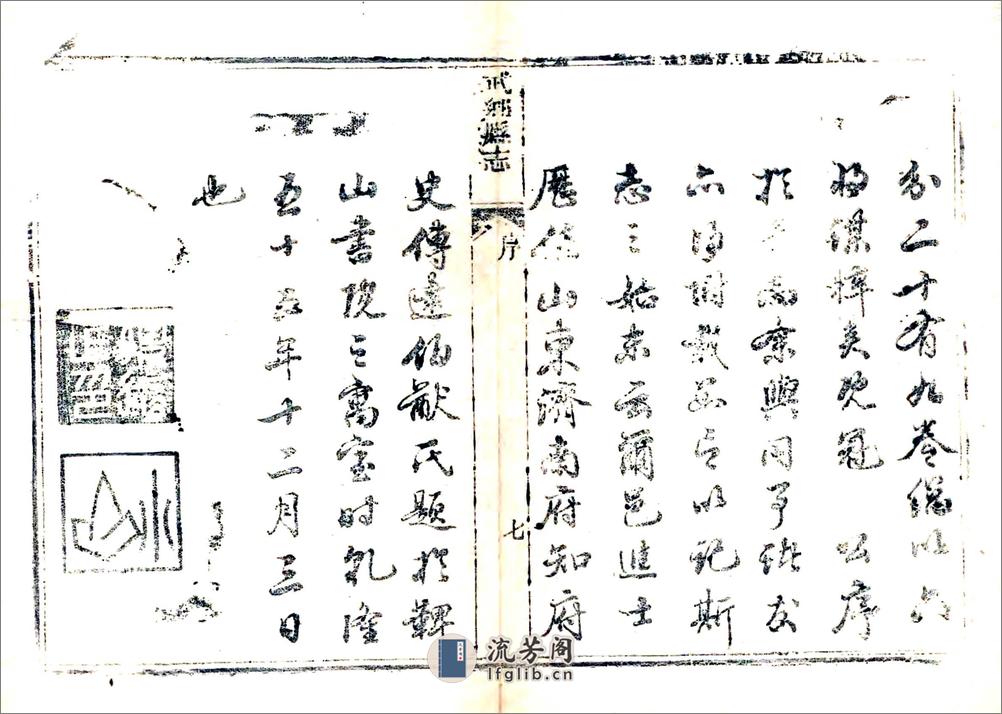 分二十有九卷總以六
將謀梓矣既冠 公序
於 而余與同事諸友
亦得附載 以記斯
志之始末云爾邑進士
歷任山東濟南府知府
武鄉縣志
序
七
史傳遠伯猷氏題於鞞
山書院之寓室時乾隆
五十五年十二月三日
也
流芳阁
lfglib.cn